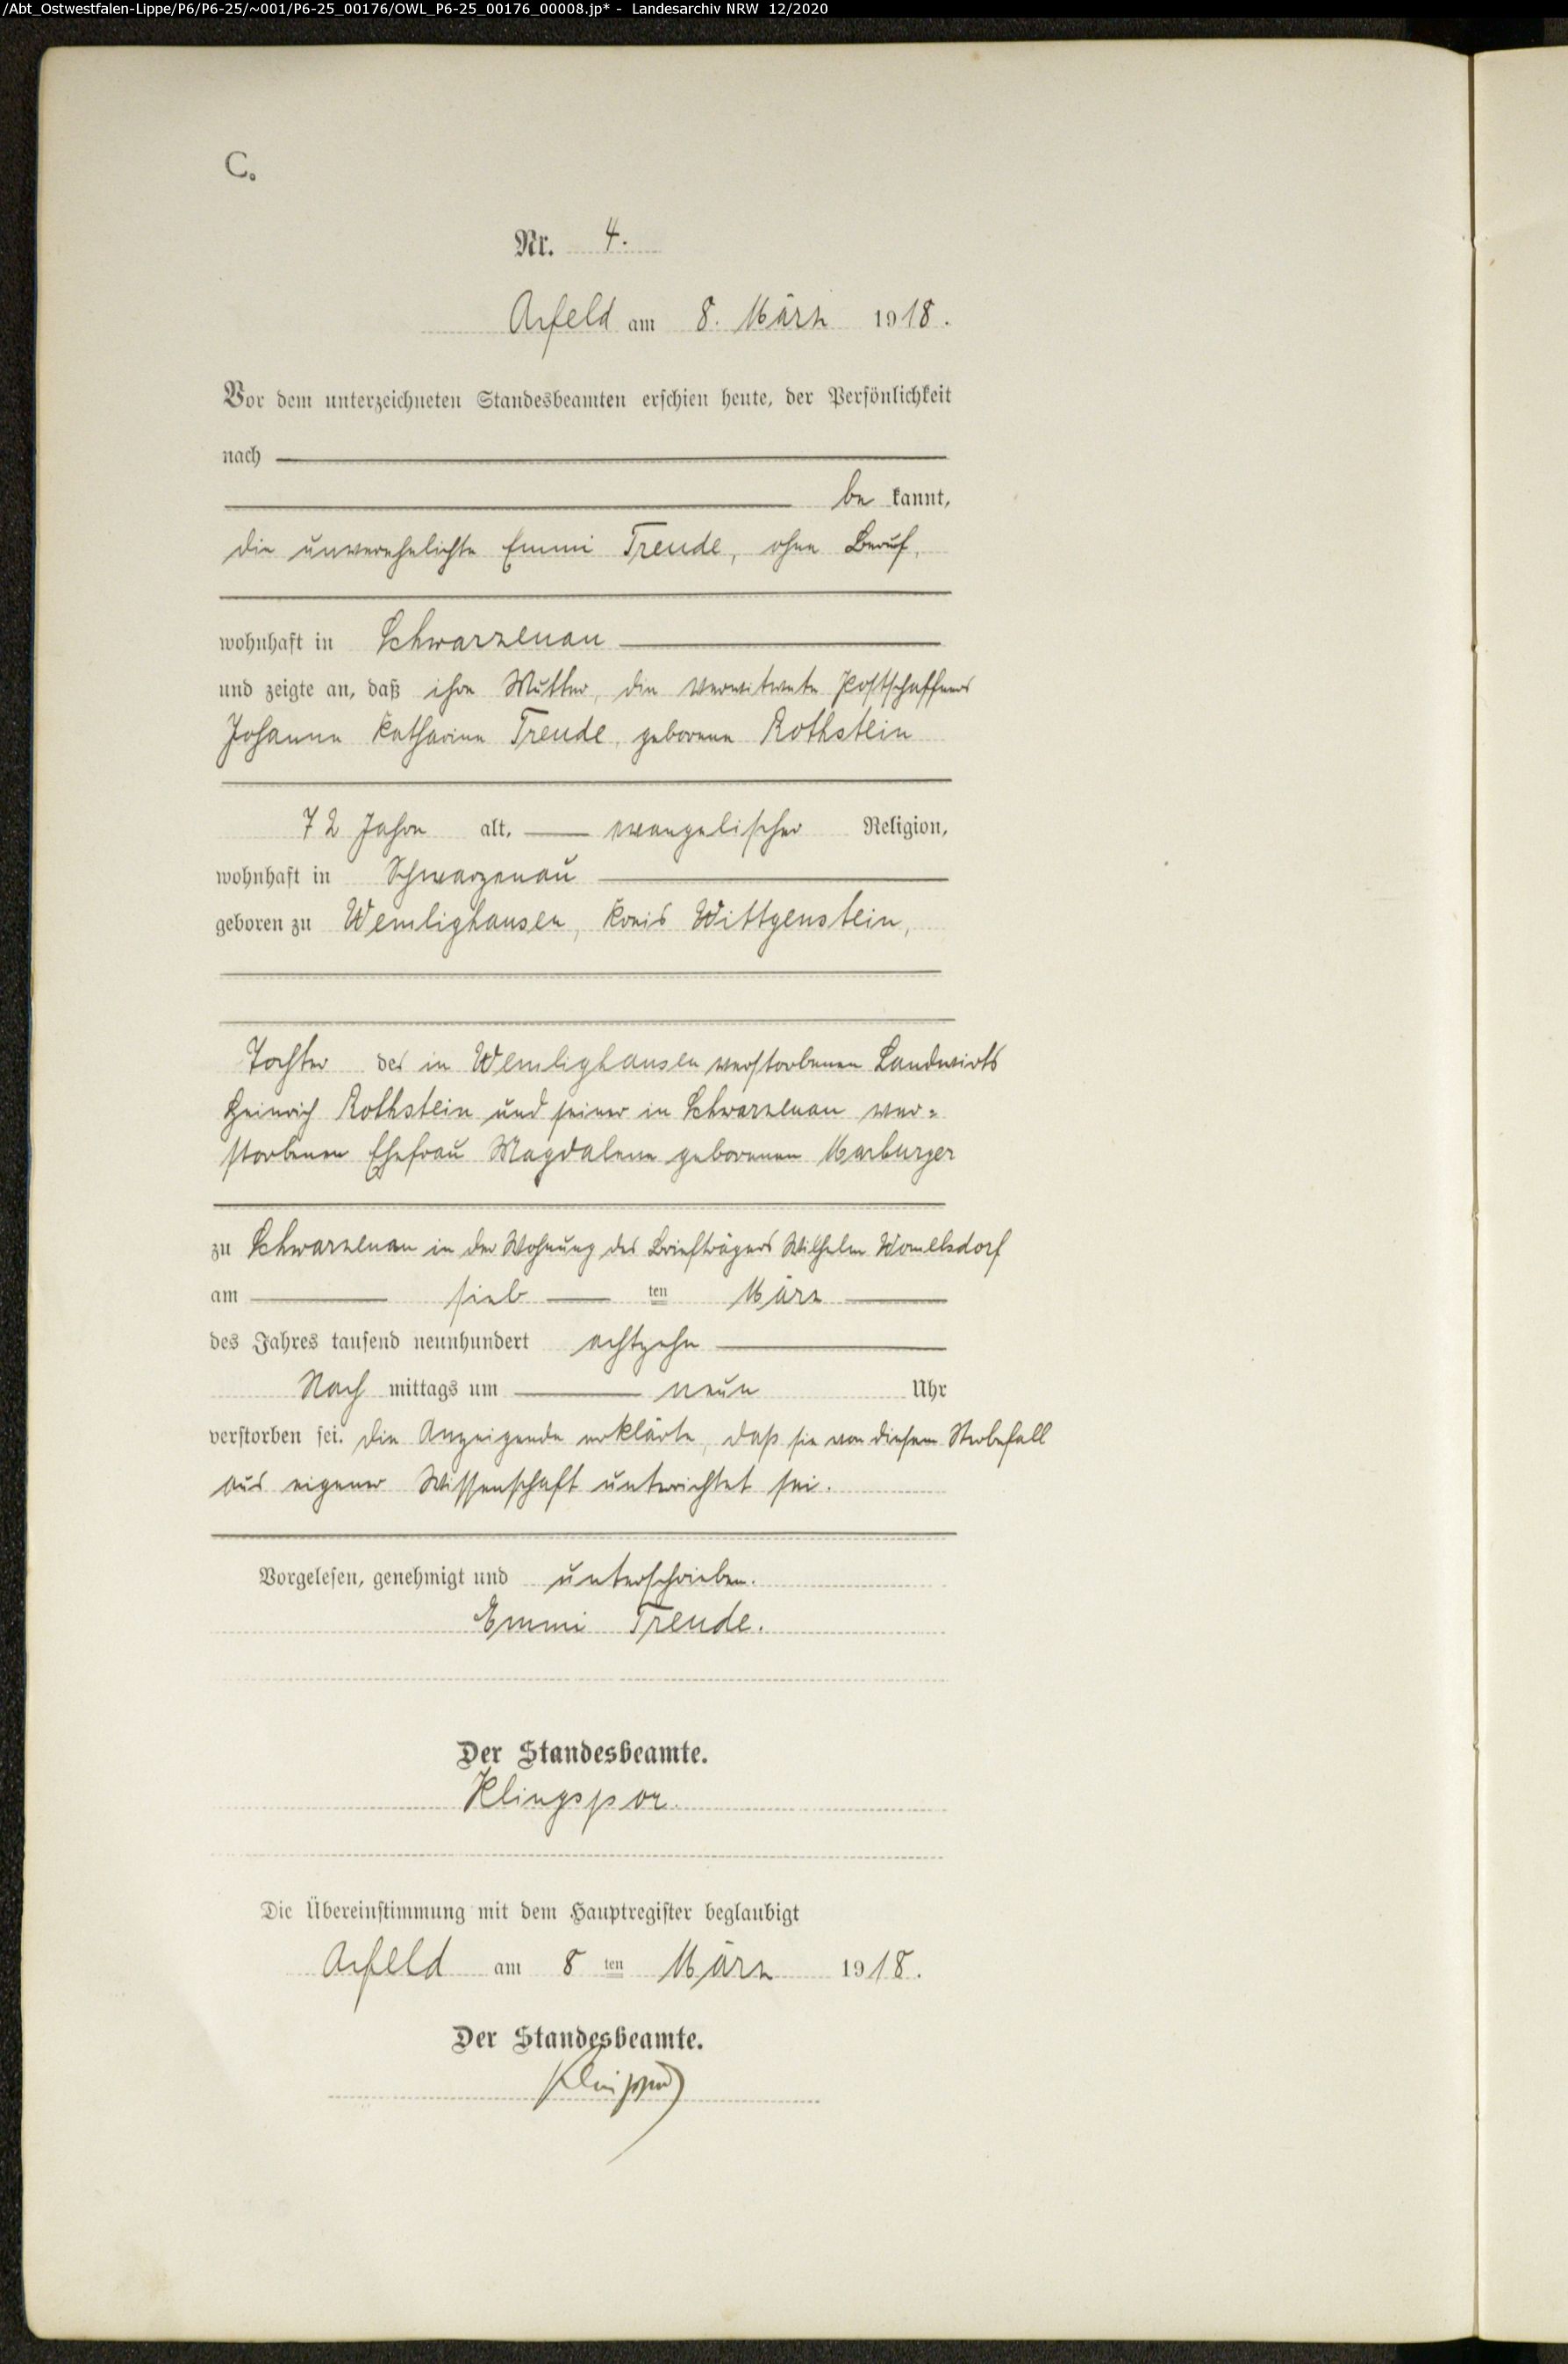 /Abt_Ostwestfalen-Lippe/P6/P6-25/~001/P6-25_00176/OWL_P6-25_00176_00008.jp* - Landesarchiv NRW 12/2020
C.
Nr. 4.
Arfeld am 8. März 1918.
Vor dem unterzeichneten Standesbeamten erschien heute, der Persönlichkeit
nach
be kannt,
die unverehelichte Emmi Treude, ohne Beruf,
wohnhaft in Schwarzenau
und zeigte an, daß ihre Mutter, die verwitwete Postschaffners
Johanne Katharine Treude, geborene Rothstein
72 Jahre alt, evangelischer Religion,
wohnhaft in Schwarzenau
geboren zu Wemlighausen, Kreis Wittgenstein,
Tochter des in Wemlighausen verstorbenen Landwirts
Heinrich Rothstein und seiner in Schwarzenau ver=
storbenen Ehefrau Magdalene geborenen Marburger
zu Schwarzenau in der Wohnung des Briefträgers Wilhelm Womelsdorf
am sieb ten März
des Jahres tausend neunhundert achtzehn
Nach mittags um neun Uhr
verstorben sei. Die Anzeigende erklärte, daß sie von diesem Sterbefall
aus eigener Wissenschaft unterrichtet sei.
Vorgelesen, genehmigt und unterschrieben.
Emmi Treude.
Der Standesbeamte.
Klingspor.
Die Übereinstimmung mit dem Hauptregister beglaubigt
Arfeld am 8 ten März 1918.
Der Standesbeamte.
Klingspor